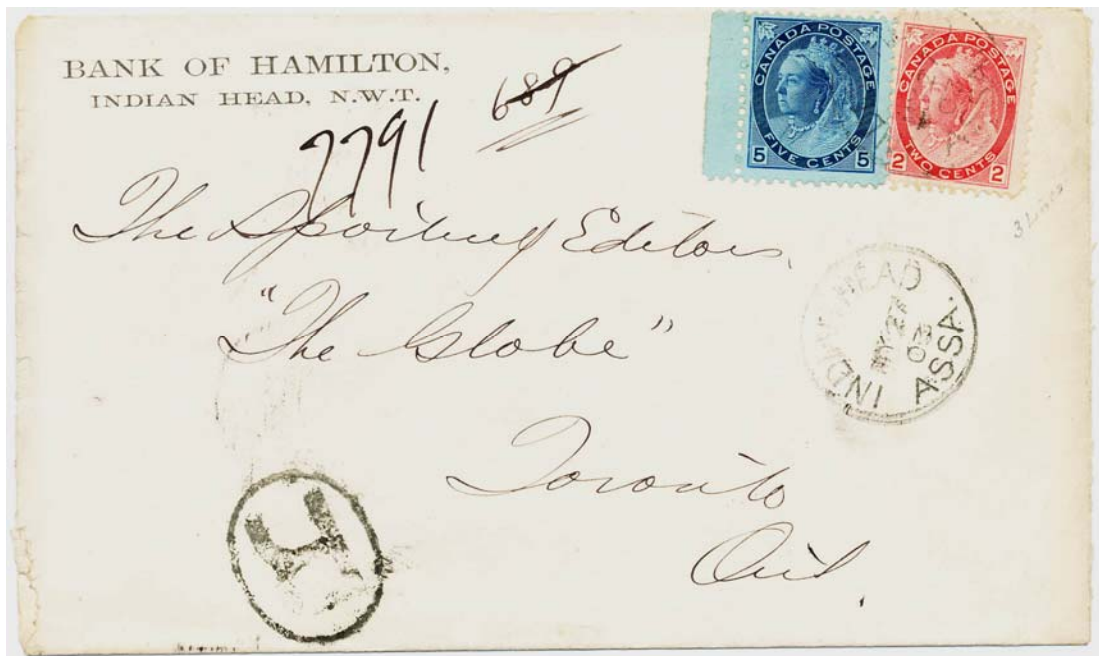 BANK OF HAMILTON,
INDIAN HEAD, N.W.T.
689
7791
CANADA POSTAGE
5 FIVE CENTS 5
CANADA POSTAGE
2 TWO CENTS 2
The Sporting Editor,
"The Globe"
Toronto
Ont.
INDIAN HEAD
MY 2
03
ASSA.